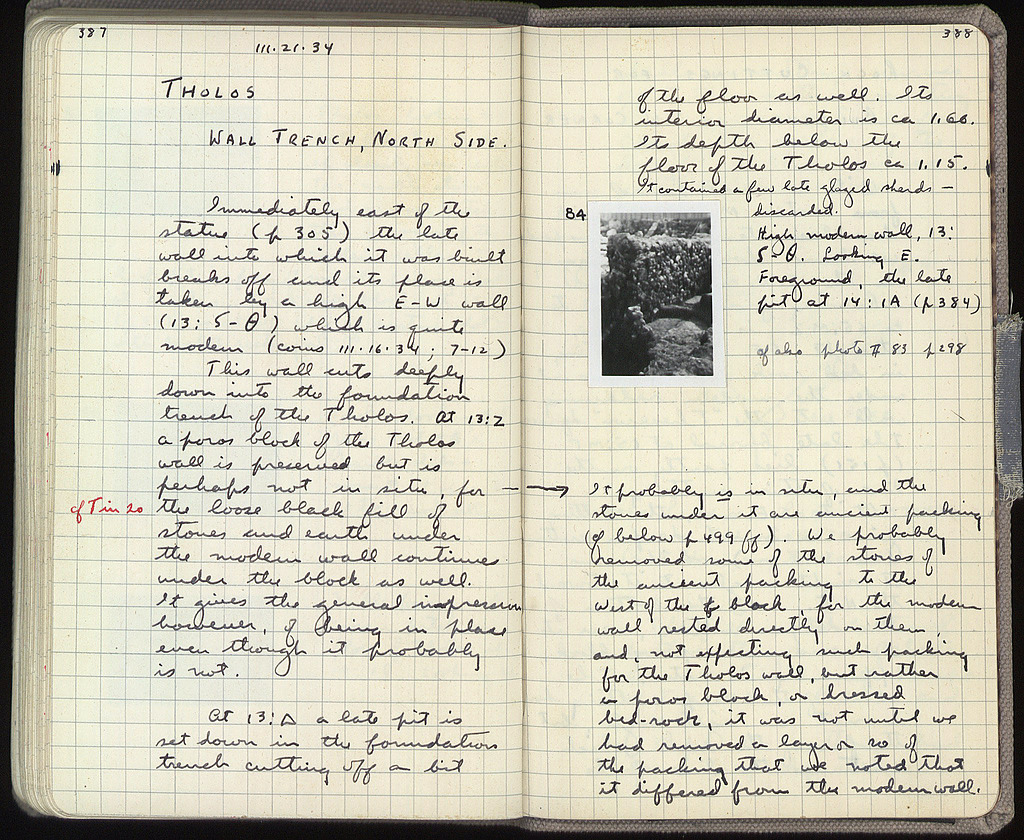 387
111.21.34
THOLOS
WALL TRENCH, NORTH SIDE.
Immediately east of the
statue (p 305) the late
wall into which it was built
breaks off and its place is
taken by a high E-W wall
(13: 5-Θ) which is quite
modern (coins 111.16.34; 7-12)
This wall cuts deeply
down into the foundation
trench of the Tholos. At 13:Z
a poros block of the Tholos
wall is preserved but is
perhaps not in situ, for — →
cf T in 20
the loose black fill of
stones and earth under
the modern wall continues
under the block as well.
It gives the general impression
however, of being in place
even though it probably
is not.
At 13:Δ a late pit is
set down in the foundation
trench cutting off a bit
388
of the floor as well. Its
interior diameter is ca 1.60.
Its depth below the
floor of the Tholos ca 1.15.
It contained a few late glazed sherds —
discarded.
84
High modern wall, 13:
5-Θ. Looking E.
Foreground, the late
pit at 14:1A (p 384)
cf also photo # 83 p 298
It probably is in situ, and the
stones under it are ancient packing
(cf below p 499 ff). We probably
removed some of the stones of
the ancient packing to the
west of the block, for the modern
wall rested directly on them,
and, not expecting such packing
for the Tholos wall, but rather
a poros block, or dressed
bed-rock, it was not until we
had removed a layer or so of
the packing that we noted that
it differed from the modern wall.